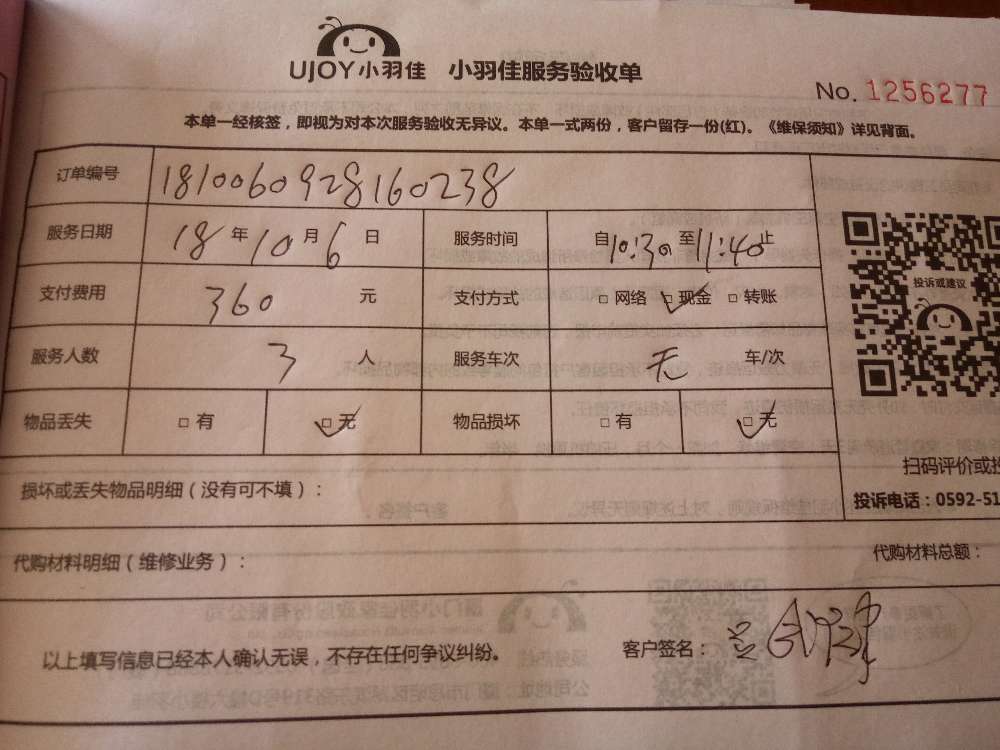 UJOY小羽佳 小羽佳服务验收单
No. 1256277
本单一经核签，即视为对本次服务验收无异议。本单一式两份，客户留存一份(红)。《维保须知》详见背面。
订单编号 181006092816023​8
服务日期 18 年 10 月 6 日 服务时间 自10:30至11:40止
支付费用 360 元 支付方式 □ 网络 □ 现金 □ 转账
投诉或建议
服务人数 3 人 服务车次 无 车/次
物品丢失 □ 有 □ 无 物品损坏 □ 有 □ 无
扫码评价或投
损坏或丢失物品明细（没有可不填）：
投诉电话：0592-51
代购材料明细（维修业务）：
代购材料总额：
以上填写信息已经本人确认无误，不存在任何争议纠纷。 客户签名：